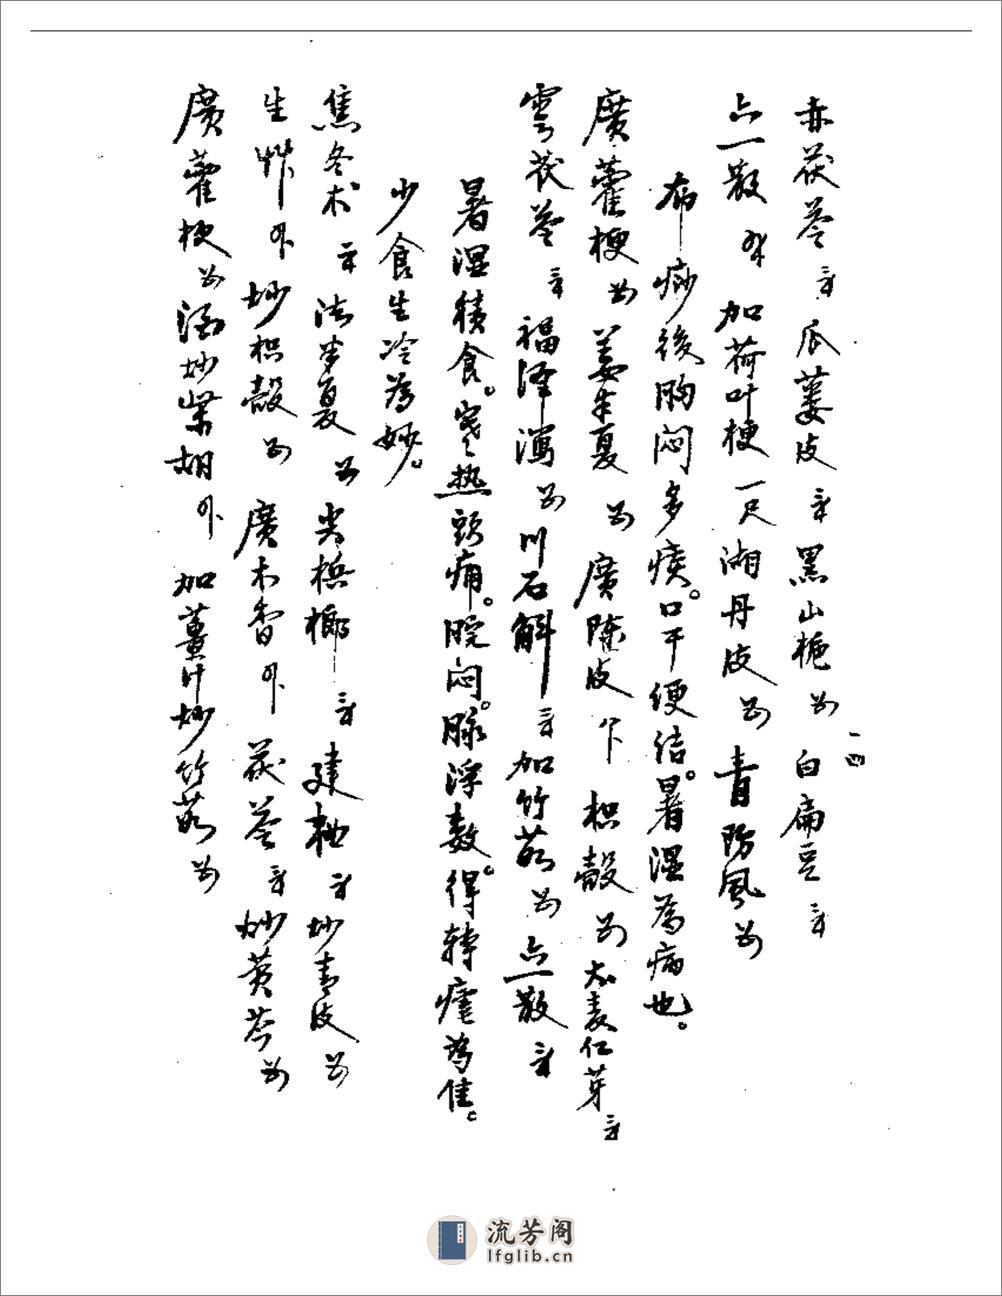 赤茯苓 三钱 瓜蒌皮 三钱 黑山栀 钱半 白扁豆 三钱
六一散 加荷叶梗 一尺 湘丹皮 钱半 青防风 钱半
布 痧後胸闷多痰。口干便结。暑湿為病也。
廣藿梗 钱半 姜半夏 钱半 廣陈皮 一钱 枳殼 钱半 大麦仁芽 三钱
雲茯苓 三钱 福泽瀉 钱半 川石斛 三钱 加竹茹 钱半 六一散 三钱
暑湿積食。寒热頭痛。脘闷。脉浮数。得轉瘧為佳。
少食生冷為妙。
焦冬术 二钱 法半夏 钱半 尖槟榔 三钱 建神曲 三钱 炒青皮 钱半
生草 八分 炒枳殼 钱半 廣木香 八分 茯苓 三钱 炒黄芩 钱半
廣藿梗 钱半 酒炒柴胡 八分 加薑汁炒竹茹 钱半
一四
流芳阁
lfglib.cn